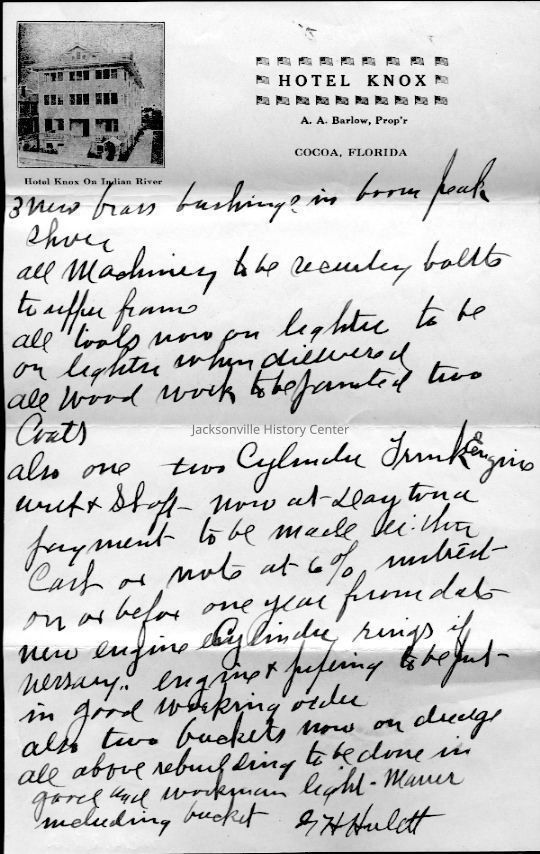 HOTEL KNOX
A. A. Barlow, Prop'r
COCOA, FLORIDA
Hotel Knox On Indian River
3 new brass bushings in boom peak
Shive
all Machinery to be securley boltd
to upper frame
all tools now on lighter to be
on lighter when dilevered
all wood work to be painted two
Coats
Jacksonville History Center
also one two Cylinder Trunk Engine
& Shaft now at Daytona
payment to be made either
Cash or note at 6% intrest
on or before one year from date
new engine Cylinder rings if
nersary. engine & pipeing to be put
in good working order
also two buckets now on dredge
all above rebuilding to be done in
good and workman light Maner
including bucket G H Hulett